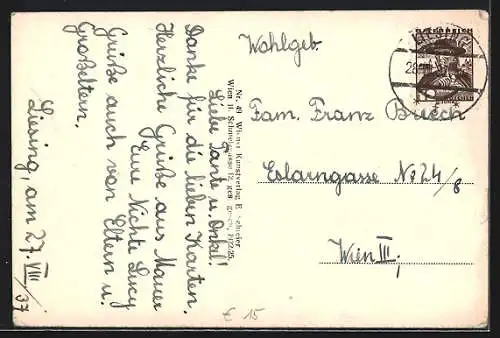 Liebe Tante u. Onkel!
Danke für die lieben Karten.
Herzliche Grüße aus Mauer
Eure Nichte Lucy
Grüße auch von Eltern u.
Großeltern.
Liesing, am 27. VIII/37
Nr. 49 Wiener Kunstverlag
Wien II. Schmelzgasse 12, ges. gesch. 1922/25.
Wohlgeb.
Fam. Franz Busch
Eslarngasse No 24/8
Wien III,
ÖSTERREICH
LIESING
€ 15